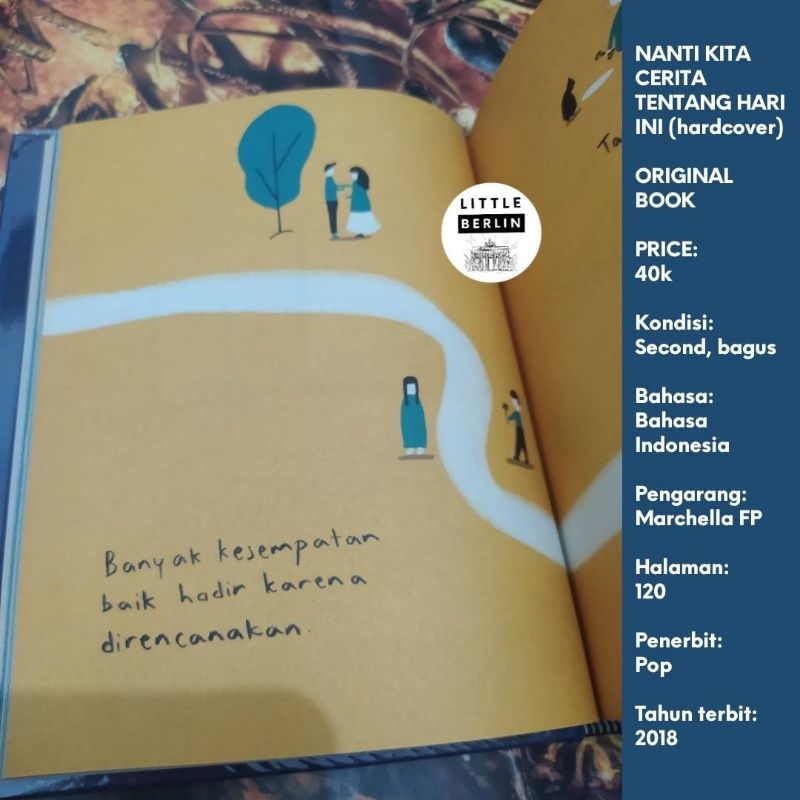 Banyak kesempatan
baik hadir karena
direncanakan.
LITTLE
BERLIN
NANTI KITA
CERITA
TENTANG HARI
INI (hardcover)
ORIGINAL
BOOK
PRICE:
40k
Kondisi:
Second, bagus
Bahasa:
Bahasa
Indonesia
Pengarang:
Marchella FP
Halaman:
120
Penerbit:
Pop
Tahun terbit:
2018